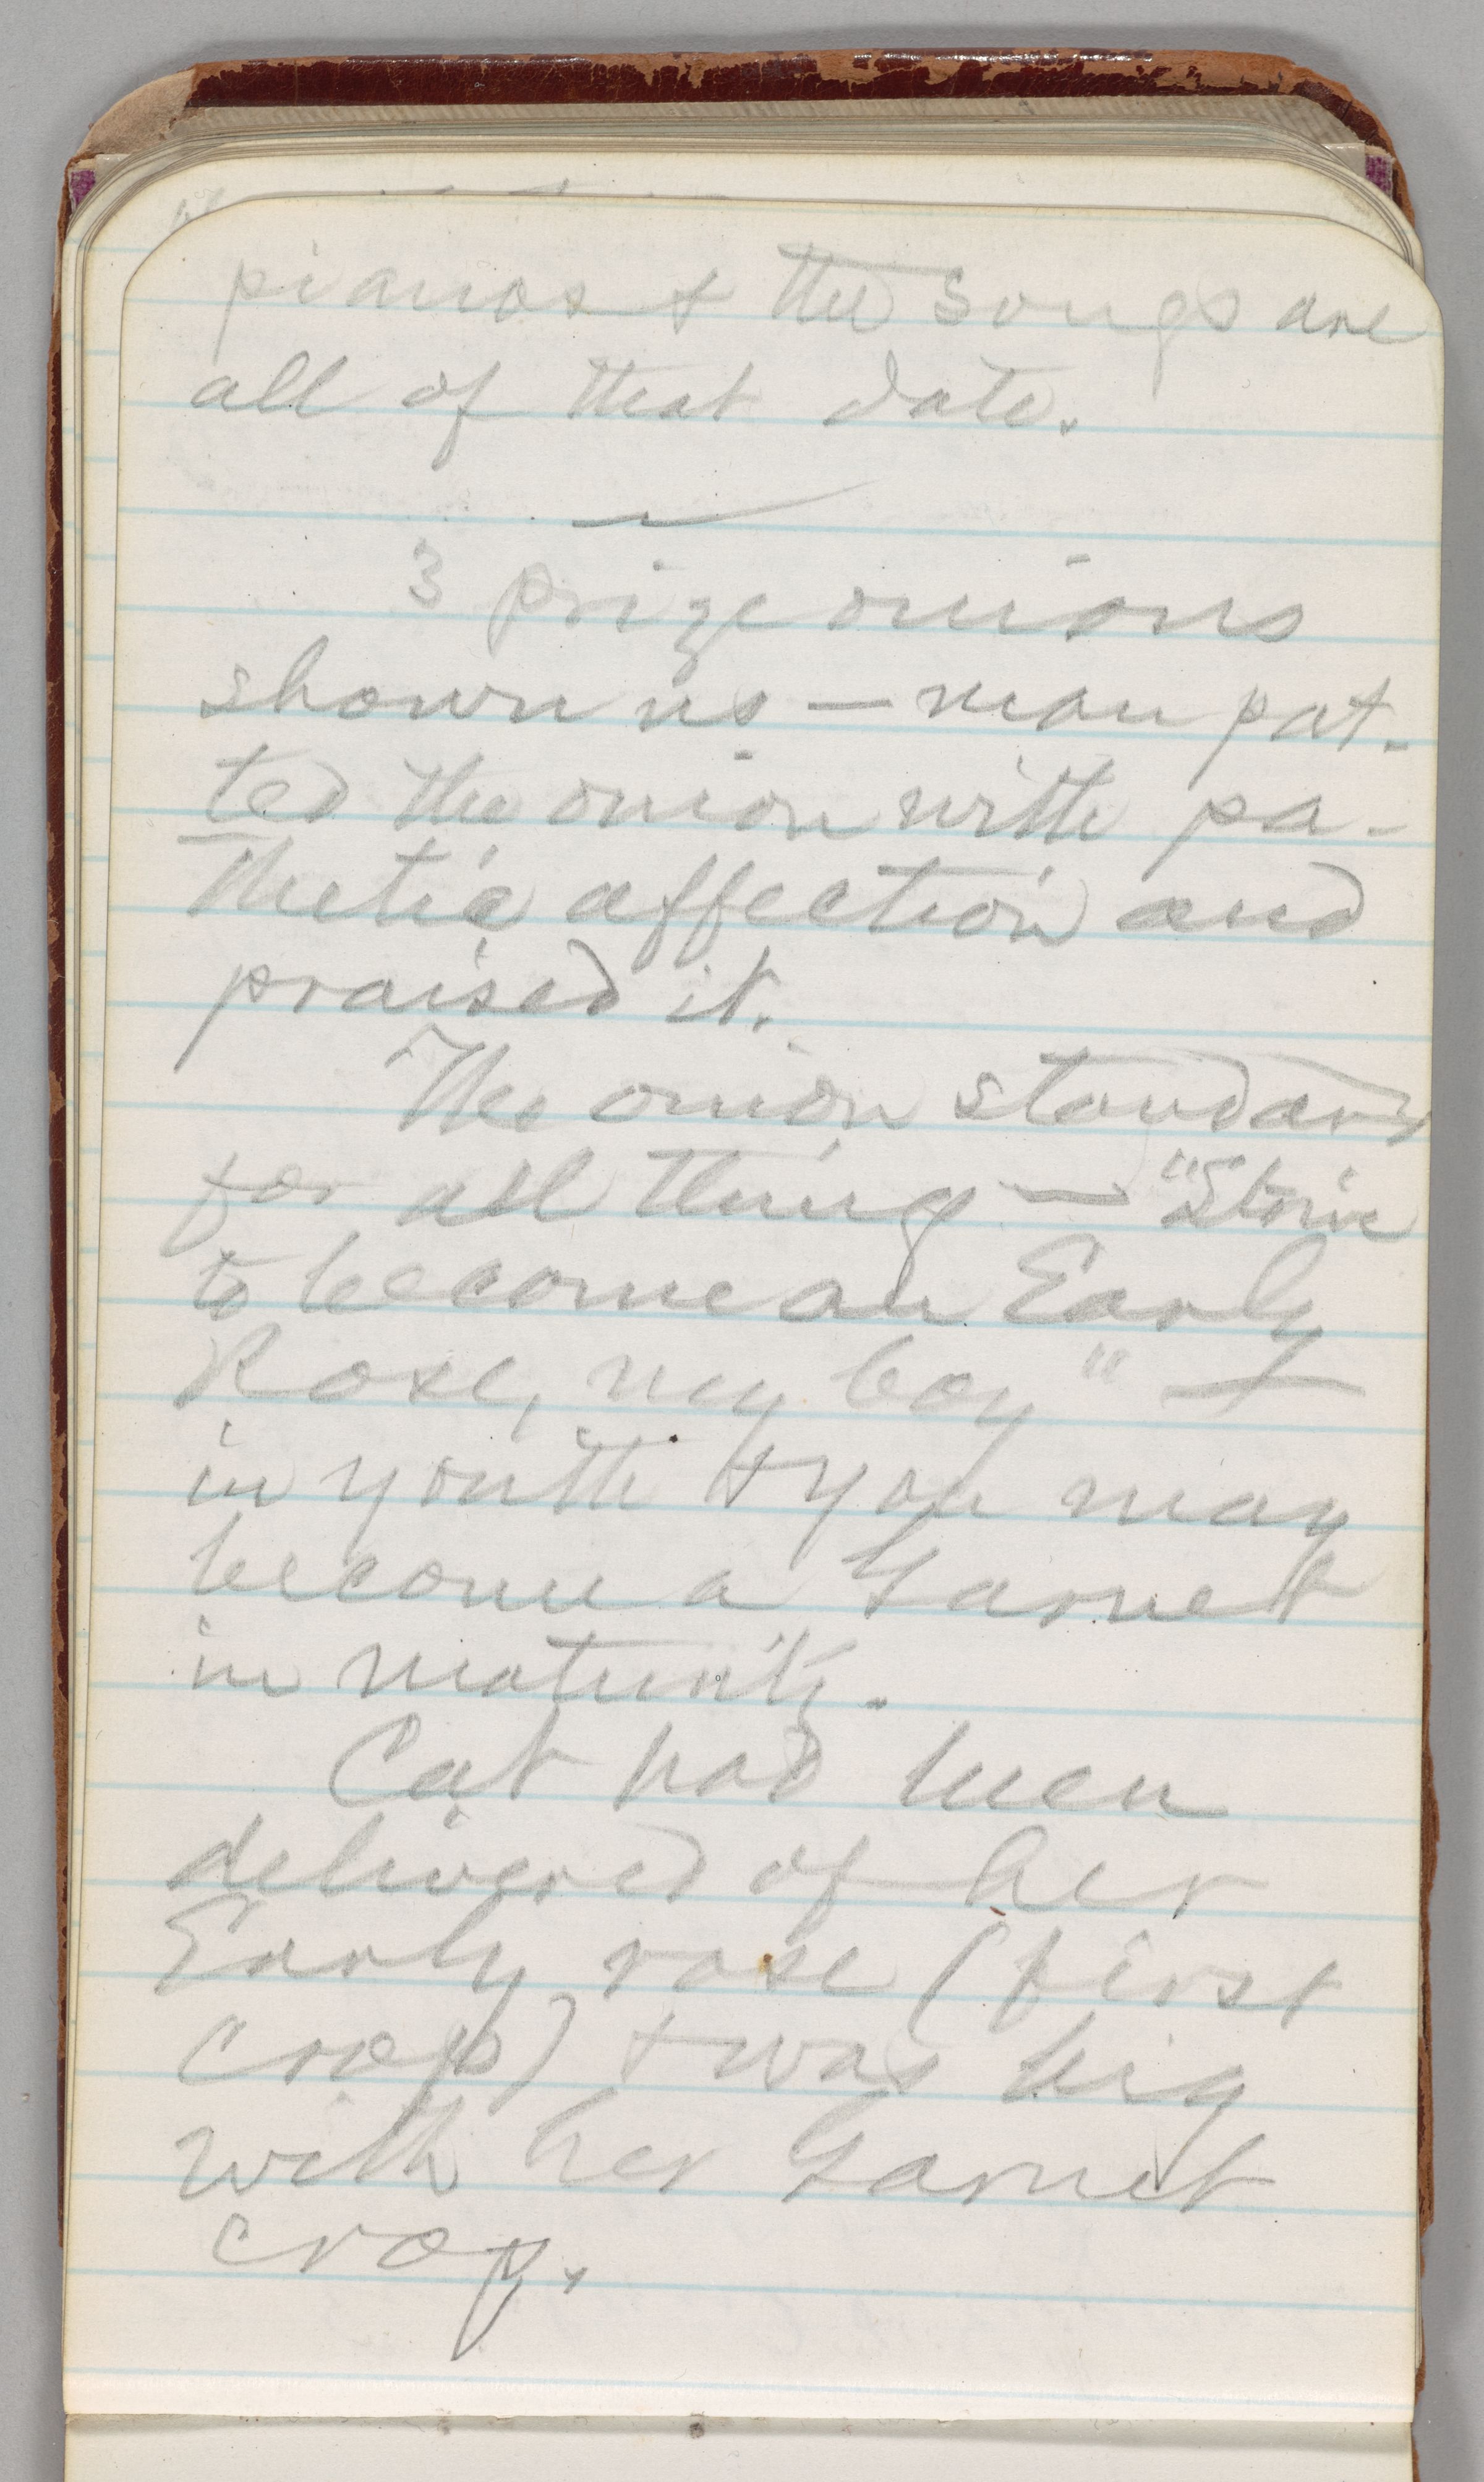 pianos & the songs are
all of that date.
3 prize onions
shown us — man pat-
ted the onion with pa-
thetic affection and
praised it.
The onion standard
for all thing — "Strive
to become an Early
Rose, my boy" —
in youth & you may
become a Garnet
in maturity.
Cat had been
delivered of her
Early rose (first
crop) & was big
with her Garnet
crop.